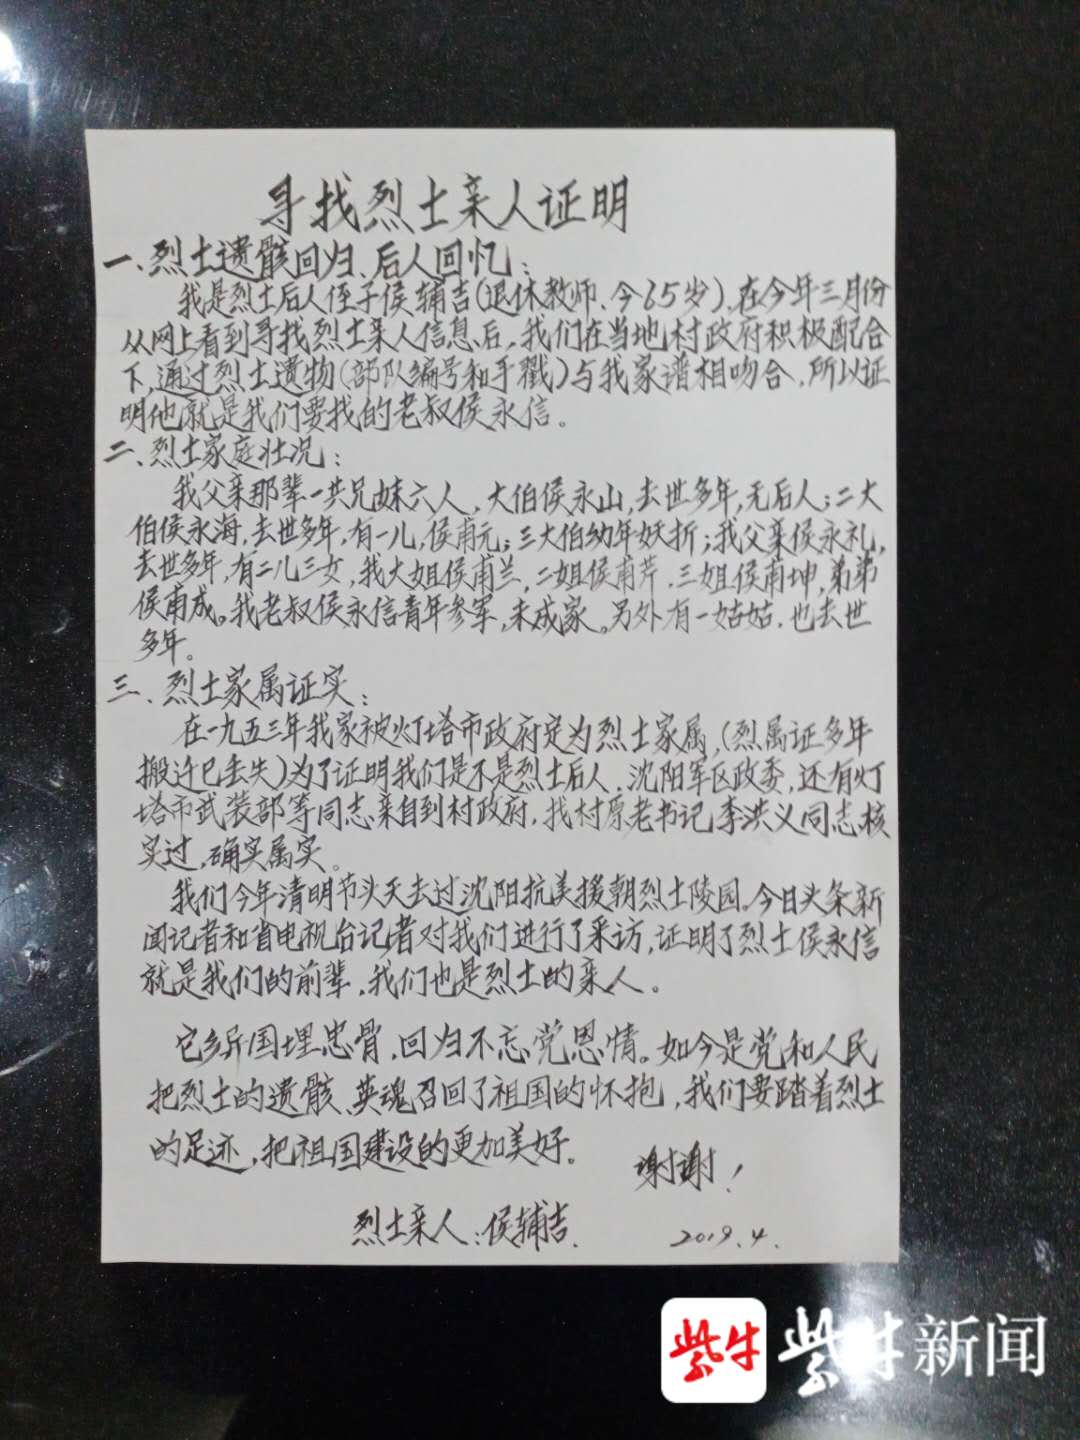 寻找烈士亲人证明
一、烈士遗骸回归、后人回忆：
我是烈士后人侄子侯辅吉(退休教师、今65岁),在今年三月份
从网上看到寻找烈士亲人信息后,我们在当地村政府积极配合
下,通过烈士遗物(部队编号和手戳)与我家谱相吻合,所以证
明他就是我们要找的老叔侯永信。
二、烈士家庭壮况：
我父亲那辈一共兄妹六人,大伯侯永山,去世多年,无后人;二大
伯侯永海,去世多年,有一儿,侯甫元;三大伯幼年妖折;我父亲侯永礼,
去世多年,有二儿三女,我大姐侯甫兰,二姐侯甫芹.三姐侯甫坤,弟弟
侯甫成。我老叔侯永信青年参军,未成家。另外有一姑姑.也去世
多年。
三、烈士家属证实：
在一九五三年我家被灯塔市政府定为烈士家属,(烈属证多年
搬迁已丢失)为了证明我们是不是烈士后人.沈阳军区政委,还有灯
塔市武装部等同志亲自到村政府,找村原老书记李洪义同志核
实过,确实属实。
我们今年清明节头天去过沈阳抗美援朝烈士陵园。今日头条新
闻记者和省电视台记者对我们进行了采访,证明了烈士侯永信
就是我们的前辈,我们也是烈士的亲人。
它乡异国埋忠骨,回归不忘党恩情。如今是党和人民
把烈士的遗骸、英魂召回了祖国的怀抱,我们要踏着烈士
的足迹,把祖国建设的更加美好。
谢谢!
烈士亲人:侯辅吉.
2019.4.
紫牛 紫牛新闻